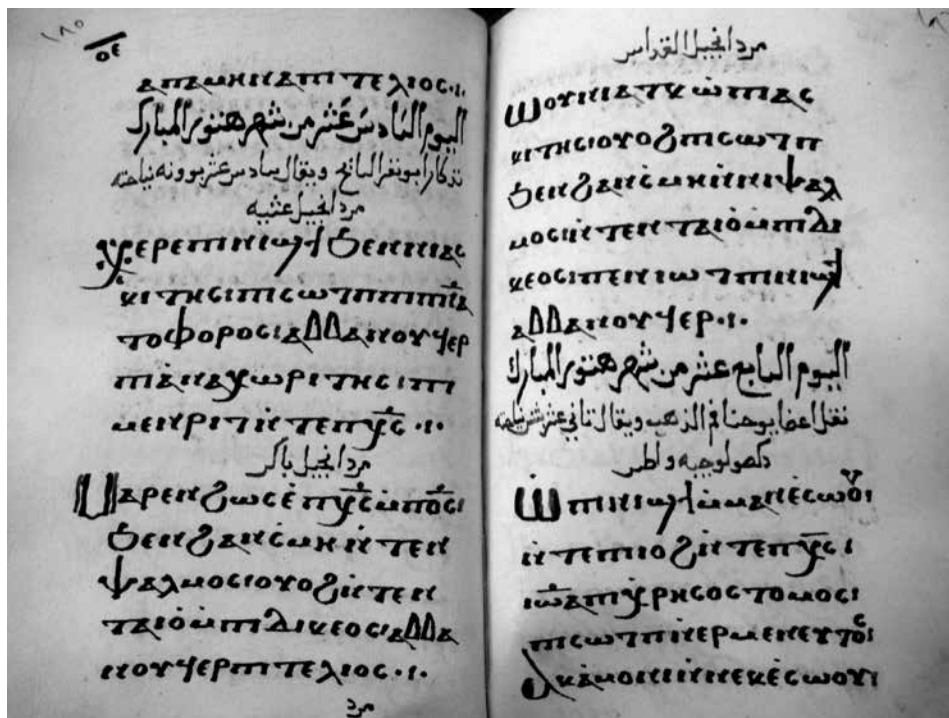 ١٨٥
ⲟⲉ
ⲁⲡⲁ ⲙⲏⲛⲁ ⲡⲓⲧⲉⲗⲓⲟⲥ·ⲓ·
اليوم السادس عشر من شهر هتور المبارك
تذكار ابو نفر السايح ويقال سادس عشر بوونه نياحته
مرد انجيل عشيه
ⲭⲉⲣⲉ ⲡⲓⲛⲓϣϯ ϧⲉⲛ ⲛⲓⲁⲥ
ⲕⲓⲧⲏⲥ ⲡⲓⲥⲱⲧⲡ ⲙ̀ⲡ̅ⲛ̅ⲁ̅
ⲧⲟⲫⲟⲣⲟⲥ ⲁⲃⲃⲁ ⲛⲟⲩϥⲉⲣ
ⲡⲓⲁⲛⲁⲭⲱⲣⲓⲧⲏⲥ ⲡⲓ
ⲙⲉⲛⲣⲓⲧ ⲛ̀ⲧⲉ ⲡⲭ̅ⲥ̅·ⲓ·
مرد انجيل باكر
Ⲙⲁⲣⲉⲛϩⲱⲥ ⲉ̀ⲡⲭ̅ⲥ̅ ⲙ̀ⲡⲟ̅ⲥ̅
ϧⲉⲛ ϩⲁⲛⲥⲙⲏ ⲛ̀ⲧⲉⲛ
ⲯⲁⲗⲙⲟⲥ ⲟⲩⲟϩ ⲛ̀ⲧⲉⲛ
ⲧⲁⲓⲟ̀ ⲙ̀ⲡⲓⲇⲓⲕⲉⲟⲥ ⲁⲃⲃⲁ
ⲛⲟⲩϥⲉⲣ ⲡⲓⲧⲉⲗⲓⲟⲥ·ⲓ·
مرد
مرد انجيل القداس
Ⲱⲟⲩⲛⲓⲁⲧⲕ ⲱ̀ ⲡⲓⲁⲥ
ⲕⲓⲧⲏⲥ ⲟⲩⲟϩ ⲡⲓⲥⲱⲧⲡ
ϧⲉⲛ ϩⲁⲛⲥⲙⲏ ⲛⲉⲙ ⲯⲁⲗ
ⲙⲟⲥ ⲛ̀ⲧⲉⲛⲧⲁⲓⲟ̀ ⲙ̀ⲡⲓⲇⲓ
ⲕⲉⲟⲥ ⲡⲉⲛⲓⲱⲧ ⲡⲓⲛⲓϣϯ
ⲁⲃⲃⲁ ⲛⲟⲩϥⲉⲣ·ⲓ·
اليوم السابع عشر من شهر هتور المبارك
نقل اعضا يوحنا فم الذهب ويقال ثاني عشر بشنس نياحته
دكصولوجيه واطس
Ⲱ ⲡⲓⲛⲓϣϯ ⲙ̀ⲙⲁⲛⲉ̀ⲥⲱⲟⲩ
ⲛ̀ⲧⲉ ⲡⲓⲟϩⲓ ⲛ̀ⲧⲉ ⲡⲭ̅ⲥ̅
ⲓⲱ̅ⲁ̅ ⲡⲓⲭⲣⲏⲥⲟⲥⲧⲟⲙⲟⲥ
ⲡⲓⲥⲱⲧⲡ ⲛ̀ⲉⲣⲙⲉⲛⲉⲩⲧⲟⲥ
Ⲁⲕⲁ̀ⲙⲟⲛⲓ ⲛ̀ⲛⲉⲕⲉ̀ⲥⲱⲟⲩ